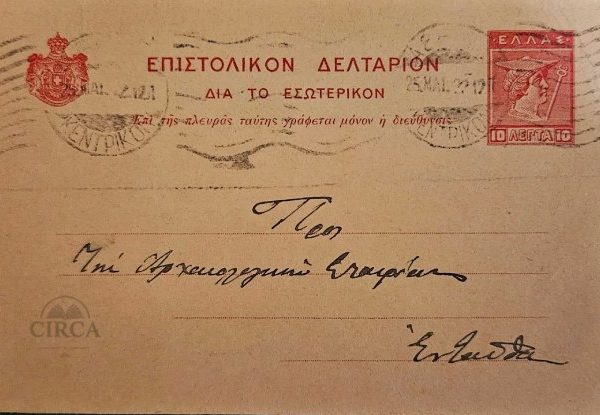 ΕΛΛΑΣ
ΕΠΙΣΤΟΛΙΚΟΝ ΔΕΛΤΑΡΙΟΝ
ΔΙΑ ΤΟ ΕΣΩΤΕΡΙΚΟΝ
Ἐπὶ τῆς πλευρᾶς ταύτης γράφεται μόνον ἡ διεύθυνσις
10 ΛΕΠΤΑ 10
25 ΜΑΙ. 22 12
ΚΕΝΤΡΙΚΟΝ
25 ΜΑΙ. 22 12
ΚΕΝΤΡΙΚΟΝ
Προς
Την Αρχαιολογικην Εταιρείαν
Ἐνταῦθα
CIRCA